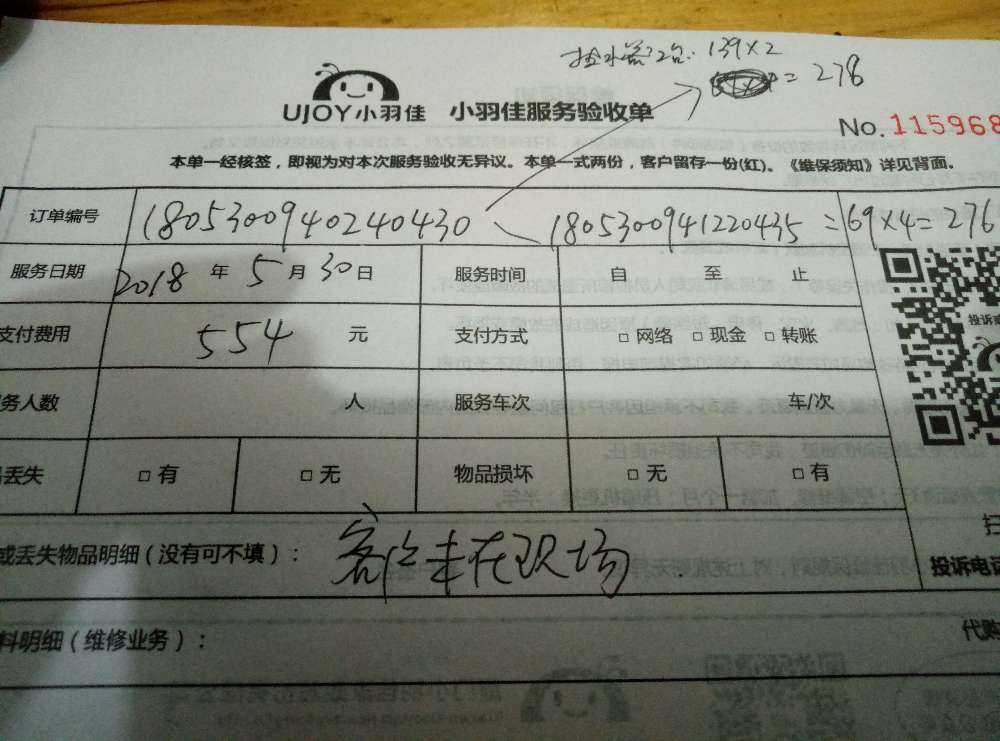 热水器2台: 139×2
= 278
UJOY小羽佳 小羽佳服务验收单
No. 115968
本单一经核签，即视为对本次服务验收无异议。本单一式两份，客户留存一份(红)。《维保须知》详见背面。
订单编号 1805300940240430 1805300941220435 =69×4=276
服务日期 2018 年 5 月 30 日 服务时间 自 至 止
支付费用 554 元 支付方式 □ 网络 □ 现金 □ 转账
务人数 人 服务车次 车/次
丢失 □ 有 □ 无 物品损坏 □ 无 □ 有
或丢失物品明细（没有可不填）： 客户未在现场
投诉电话
料明细（维修业务）： 代购